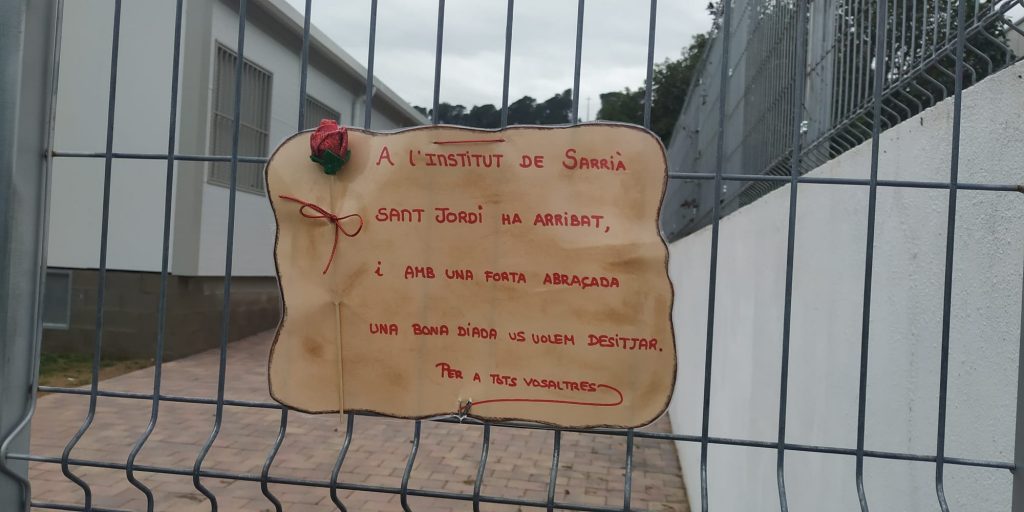 A l'INSTITUT DE SARRIÀ
SANT JORDI HA ARRIBAT,
i AMB UNA FORTA ABRAÇADA
UNA BONA DIADA US VOLEM DESITJAR.
PER A TOTS VOSALTRES